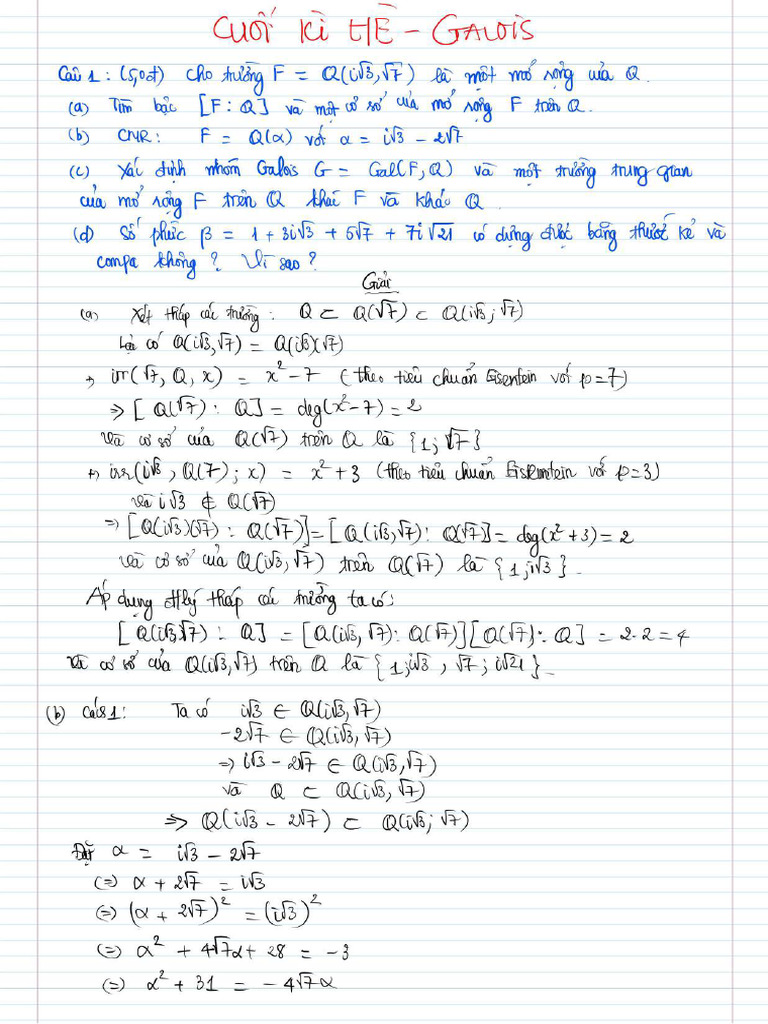 CUỐI KÌ HÈ - GALOIS
Câu 1: (5,0đ) Cho trường F = Q(i√3,√7) là một mở rộng của Q.
(a) Tìm bậc [F:Q] và một cơ sở của mở rộng F trên Q.
(b) CMR: F = Q(α) với α = i√3 - 2√7
(c) Xác định nhóm Galois G = Gal(F,Q) và một trường trung gian
của mở rộng F trên Q khác F và khác Q.
(d) Số phức β = 1 + 3i√3 + 5√7 + 7i√21 có dựng được bằng thước kẻ và
compa không? Vì sao?
Giải
(a) Xét tháp các trường: Q ⊂ Q(√7) ⊂ Q(i√3;√7)
Lại có Q(i√3,√7) = Q(i√3)(√7)
+, irr(√7, Q, x) = x² - 7 (theo tiêu chuẩn Eisentein với p=7)
⇒ [Q(√7): Q] = deg(x²-7) = 2
Và cơ sở của Q(√7) trên Q là {1;√7}
+, irr(i√3, Q(7); x) = x² + 3 (theo tiêu chuẩn Eisenstein với p=3)
Và i√3 ∉ Q(√7)
⇒ [Q(i√3)(√7): Q(√7)] = [Q(i√3,√7): Q(√7)] = deg(x²+3) = 2
Và cơ sở của Q(i√3,√7) trên Q(√7) là {1;i√3}.
Áp dụng đlý tháp các trường ta có:
[Q(i√3,√7): Q] = [Q(i√3,√7): Q(√7)][Q(√7): Q] = 2·2 = 4
Và cơ sở của Q(i√3,√7) trên Q là {1;i√3, √7; i√21}.
(b) Cách 1: Ta có i√3 ∈ Q(i√3,√7)
-2√7 ∈ Q(i√3,√7)
⇒ i√3 - 2√7 ∈ Q(i√3,√7)
và Q ⊂ Q(i√3,√7)
⇒ Q(i√3 - 2√7) ⊂ Q(i√3;√7)
Đặt α = i√3 - 2√7
(=) α + 2√7 = i√3
(=) (α + 2√7)² = (i√3)²
(=) α² + 4√7α + 28 = -3
(=) α² + 31 = -4√7α